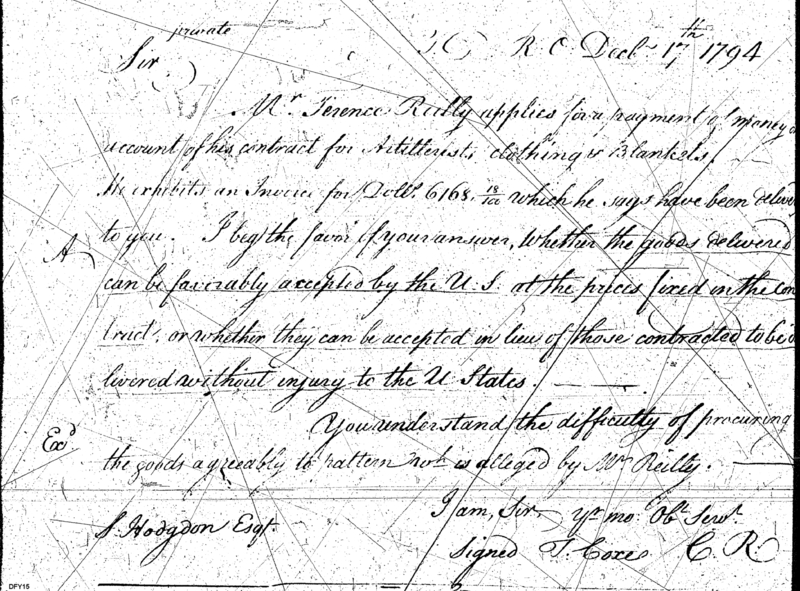 private
Sir R. O. Decbr 17th 1794
Mr. Terence Reilly applies for a payment of money on
account of his contract for Artillerists clothing & Blankets.
He exhibits an Invoice for Dolls. 6168. which he says have been deliver
A to you. I beg the favor of your answer, whether the goods delivered
can be favorably accepted by the U. S. at the prices fixed in the con
tract, or whether they can be accepted in lieu of those contracted to be d
livered without injury to the U States.
You understand the difficulty of procuring
Exd the goods agreeably to pattern is alleged by Mr Reilly.
I am, Sir, yr mo. Obt Servt.
S. Hodgdon Esqr. signed T. Coxe C. R.
DFY15